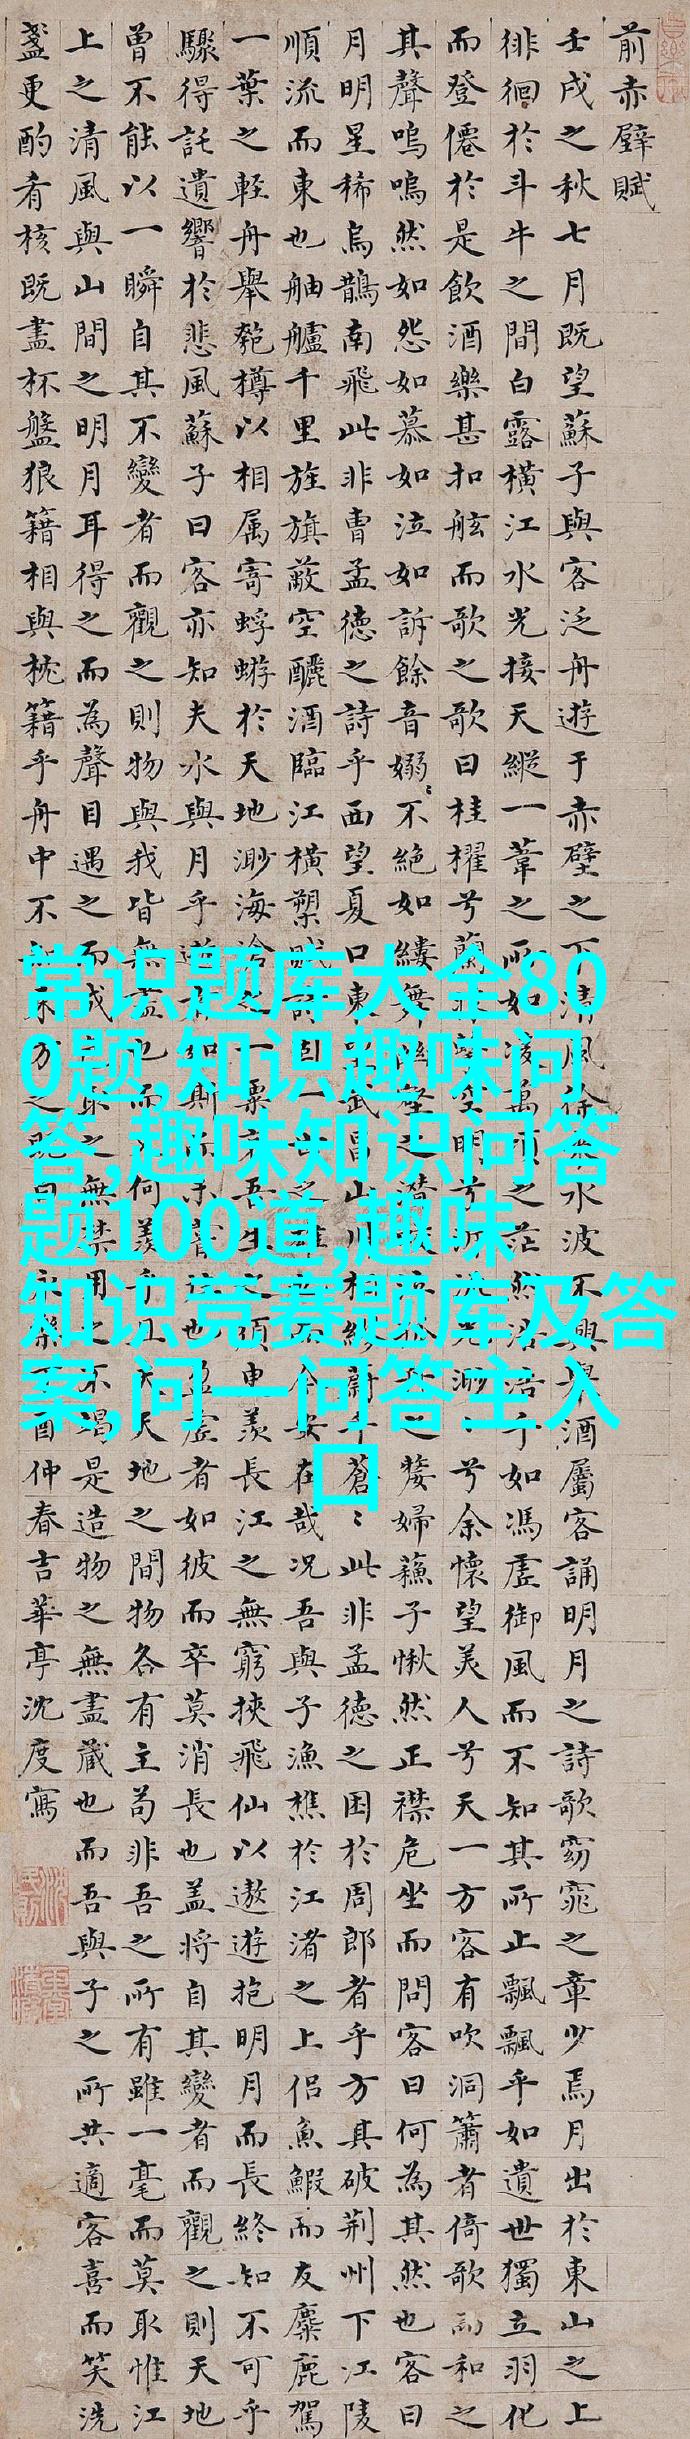 前赤壁賦
壬戌之秋七月既望蘇子與客泛舟遊于赤壁之下清風徐來水波不興舉酒屬客誦明月之詩歌窈窕之章少焉月出於東山之上
徘徊於斗牛之間白露橫江水光接天縱一葦之所如凌萬頃之茫然浩浩乎如馮虛御風而不知其所止飄飄乎如遺世獨立羽化
而登僊於是飲酒樂甚扣舷而歌之歌曰桂櫂兮蘭空明兮光渺兮余懷望美人兮天一方客有吹洞簫者倚歌而和之
其聲嗚嗚然如怨如慕如泣如訴餘音嫋〻不絕如縷舞幽壑之潛之嫠婦蘇子愀然正襟危坐而問客曰何為其然也客曰
月明星稀烏鵲南飛此非曹孟德之詩乎西望夏口東武昌山川相繆鬱乎蒼〻此非孟德之困於周郎者乎方其破荊州下江陵
順流而東也舳艫千里旌旗蔽空釃酒臨江橫槊賦詩固一今安在哉況吾與子漁樵於江渚之上侶魚鰕而友麋鹿駕
一葉之輕舟舉匏樽以相属寄蜉蝣於天地渺海之一粟吾生須申羨長江之無窮挾飛仙以遨遊抱明月而長終知不可乎
驟得託遺響於悲風蘇子曰客亦知夫水與月乎如斯未也盈虛者如彼而卒莫消長也盖將自其變者而觀之則天地
曾不能以一瞬自其不變者而觀之則物與我皆無盡也而何羨乎天地之間物各有主苟非吾之所有雖一毫而莫取惟江
上之清風與山間之明月耳得之而為聲目遇之而成取之無禁用之不竭是造物之無盡藏也而吾與子之所共適客喜而笑洗
盞更酌肴核既盡杯盤狼籍相與枕籍乎舟中不方之既樂酉仲春吉華亭沈度寫
常识题库大全80
0题,知识趣味问
答,趣味知识问答
题100道,趣味
知识竞赛题库及答
案,问一问答主入
口